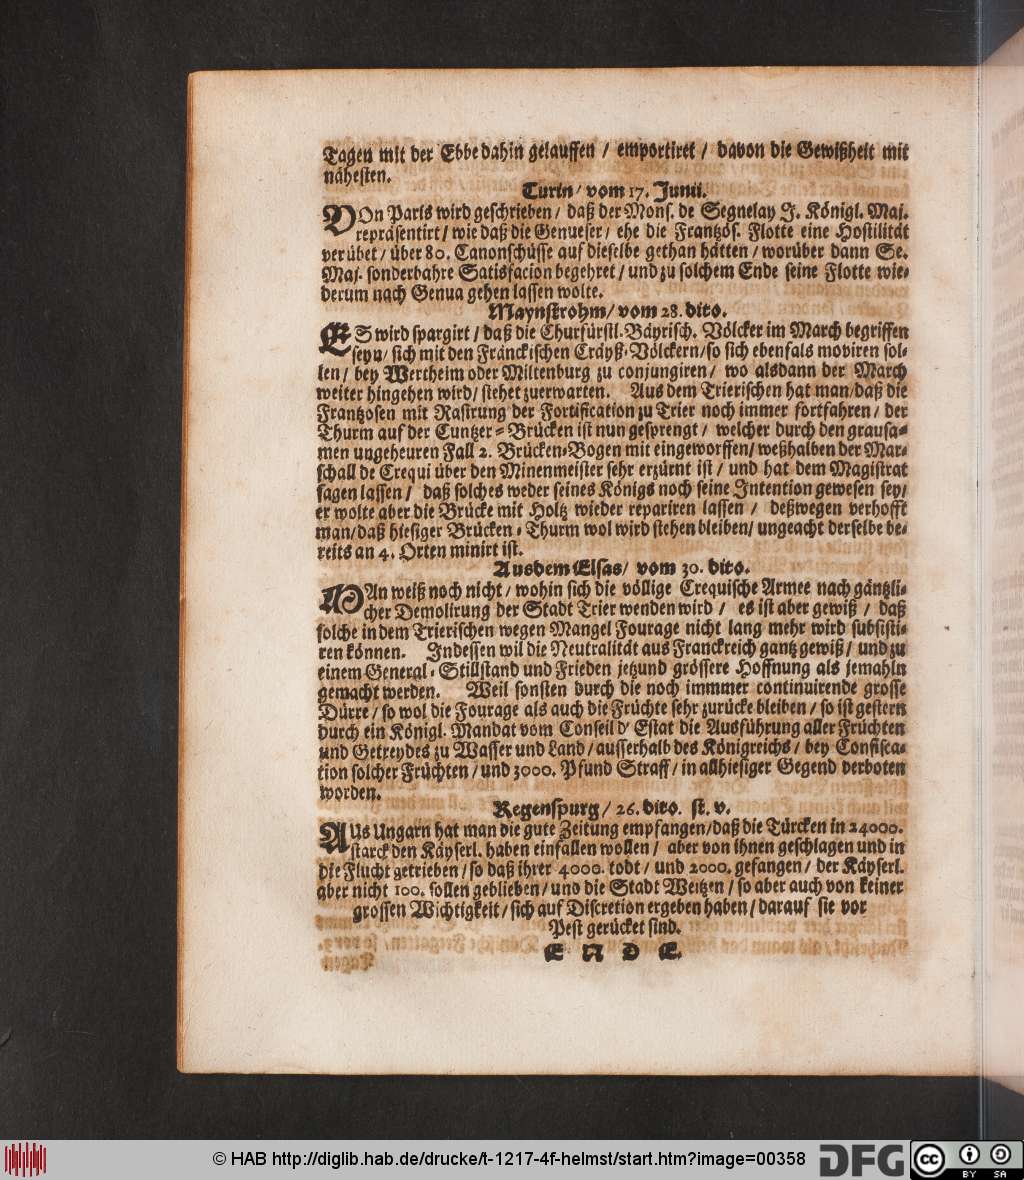 Tagen mit der Ebbe dahin gelauffen / emportiret / davon die Gewißheit mit
nähesten.
Turin / vom 17. Junii.
VOn Paris wird geschrieben / daß der Mons. de Segnelay J. Königl. Maj.
repräsentirt / wie daß die Genueser / ehe die Frantzös. Flotte eine Hostilität
verübet / über 80. Canonschüsse auf dieselbe gethan hätten / worüber dann Se.
Maj. sonderbahre Satisfacion begehret / und zu solchem Ende seine Flotte wie-
derum nach Genua gehen lassen wolte.
Maynstrohm / vom 28. dito.
ES wird spargirt / daß die Churfürstl. Bäyrisch. Völcker im March begriffen
seyn / sich mit den Fränckischen Cräyß-Völckern / so sich ebenfals moviren sol-
len / bey Wertheim oder Miltenburg zu conjungiren / wo alsdann der March
weiter hingehen wird / stehet zuerwarten. Aus dem Trierischen hat man / daß die
Frantzosen mit Rasirung der Fortification zu Trier noch immer fortfahren / der
Thurm auf der Cuntzer-Brücken ist nun gesprengt / welcher durch den grausa-
men ungeheuren Fall 2. Brücken-Bogen mit eingeworffen / weßhalben der Mar-
schall de Crequi über den Minenmeister sehr erzürnt ist / und hat dem Magistrat
sagen lassen / daß solches weder seines Königs noch seine Intention gewesen sey /
er wolte aber die Brücke mit Holtz wieder repariren lassen / deßwegen verhofft
man / daß hiesiger Brücken-Thurm wol wird stehen bleiben / ungeacht derselbe be-
reits an 4. Orten minirt ist.
Aus dem Elsas / vom 30. dito.
MAn weiß noch nicht / wohin sich die völlige Crequische Armee nach gäntzli-
cher Demolirung der Stadt Trier wenden wird / es ist aber gewiß / daß
solche in dem Trierischen wegen Mangel Fourage nicht lang mehr wird subsisti-
ren können. Indessen wil die Neutralität aus Franckreich gantz gewiß / und zu
einem General-Stillstand und Frieden jetzund grössere Hoffnung als jemahln
gemacht werden. Weil sonsten durch die noch immmer continuirende grosse
Dürre / so wol die Fourage als auch die Früchte sehr zurücke bleiben / so ist gestern
durch ein Königl. Mandat vom Conseil d' Estat die Ausführung aller Früchten
und Getreydes zu Wasser und Land / ausserhalb des Königreichs / bey Confisca-
tion solcher Früchten / und 3000. Pfund Straff / in allhiesiger Gegend verboten
worden.
Regenspurg / 26. dito. st. v.
AUs Ungarn hat man die gute Zeitung empfangen / daß die Türcken in 24000.
starck den Käyserl. haben einfallen wollen / aber von ihnen geschlagen und in
die Flucht getrieben / so daß ihrer 4000. todt / und 2000. gefangen / der Käyserl.
aber nicht 100. sollen geblieben / und die Stadt Weitzen / so aber auch von keiner
grossen Wichtigkeit / sich auf Discretion ergeben haben / darauf sie vor
Pest gerücket sind.
E N D E.
© HAB http://diglib.hab.de/drucke/t-1217-4f-helmst/start.htm?image=00358
DFG
cc BY SA